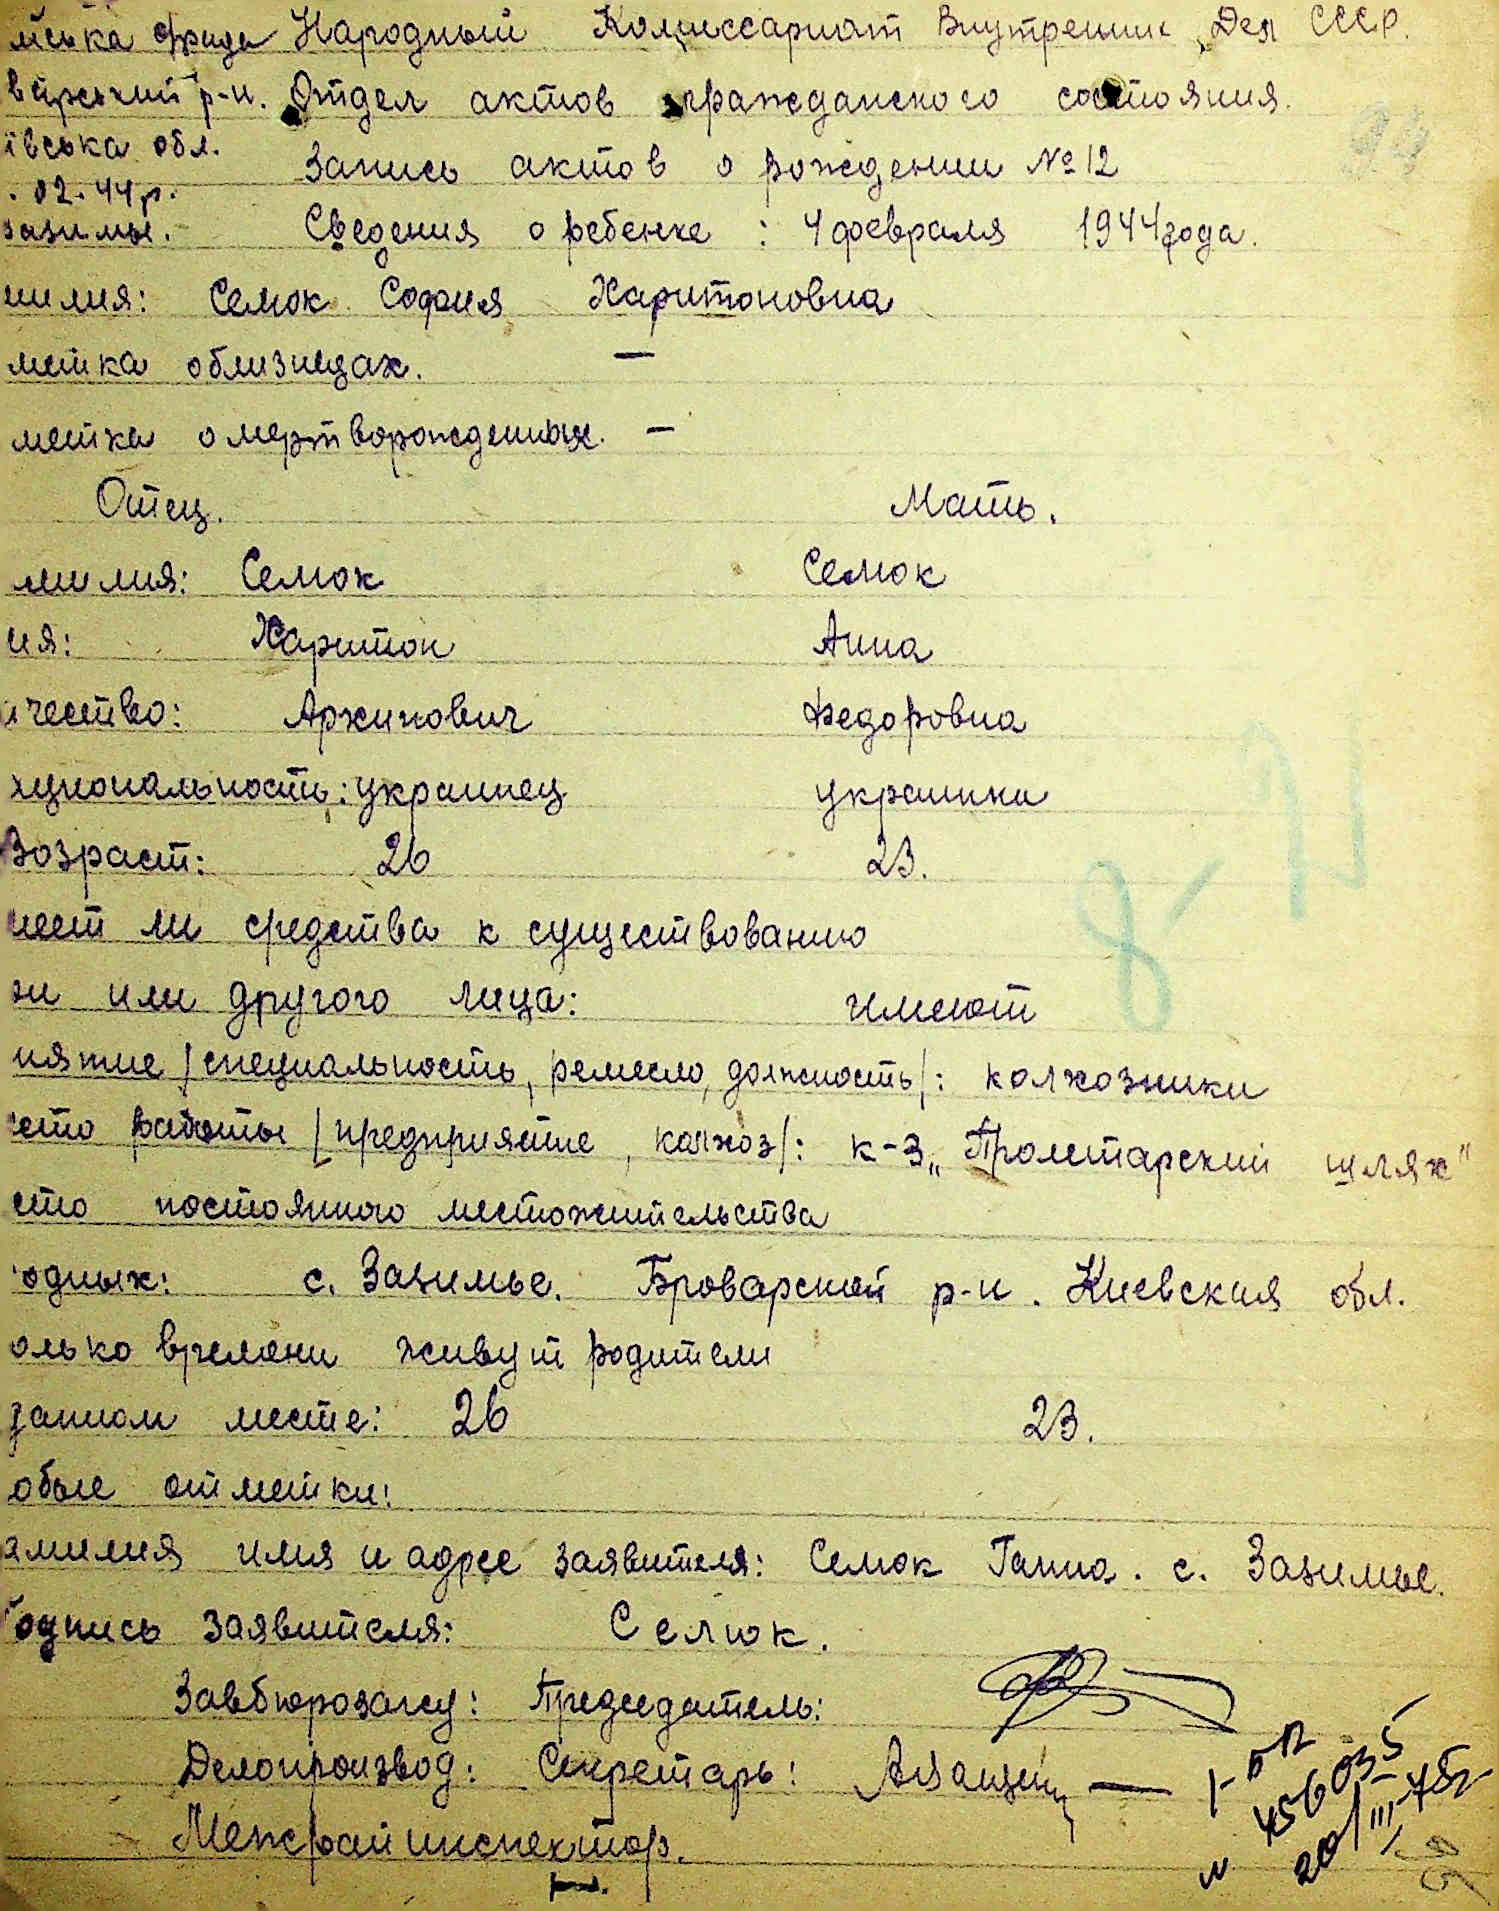 Народный Комиссариат Внутрених Дел СССР.
р-н. Отдел актов гражданского состояния.
івська обл.
Запись актов о рождении № 12
. 02. 44 р.
Сведения о ребенке : 4 февраля 1944 года.
милия: Семок София Харитоновна
метка о близнецах. —
метка о мертворожденных. —
Отец. Мать.
милия: Семок Семок
мя: Харитон Анна
чество: Архипович Федоровна
циональность: украинец украинка
Возраст: 26 23.
меет ли средства к существованию
или другого лица: имеют
нятие /специальность, ремесло, должность/: колхозники
есто работы /предприятие, колхоз/: к-з „Пролетарский шлях"
сто постоянного местожительства
одных: с. Зазимье. Броварской р-н. Киевская обл.
олько времени живут родители
данном месте: 26 23.
обые отметки:
амилия имя и адрес заявителя: Семок Ганна. с. Зазимье.
одпись заявителя: Семок.
Завбюрозагсу: Председатель:
Делопроизвод: Секретарь:
Межрайинспектор.